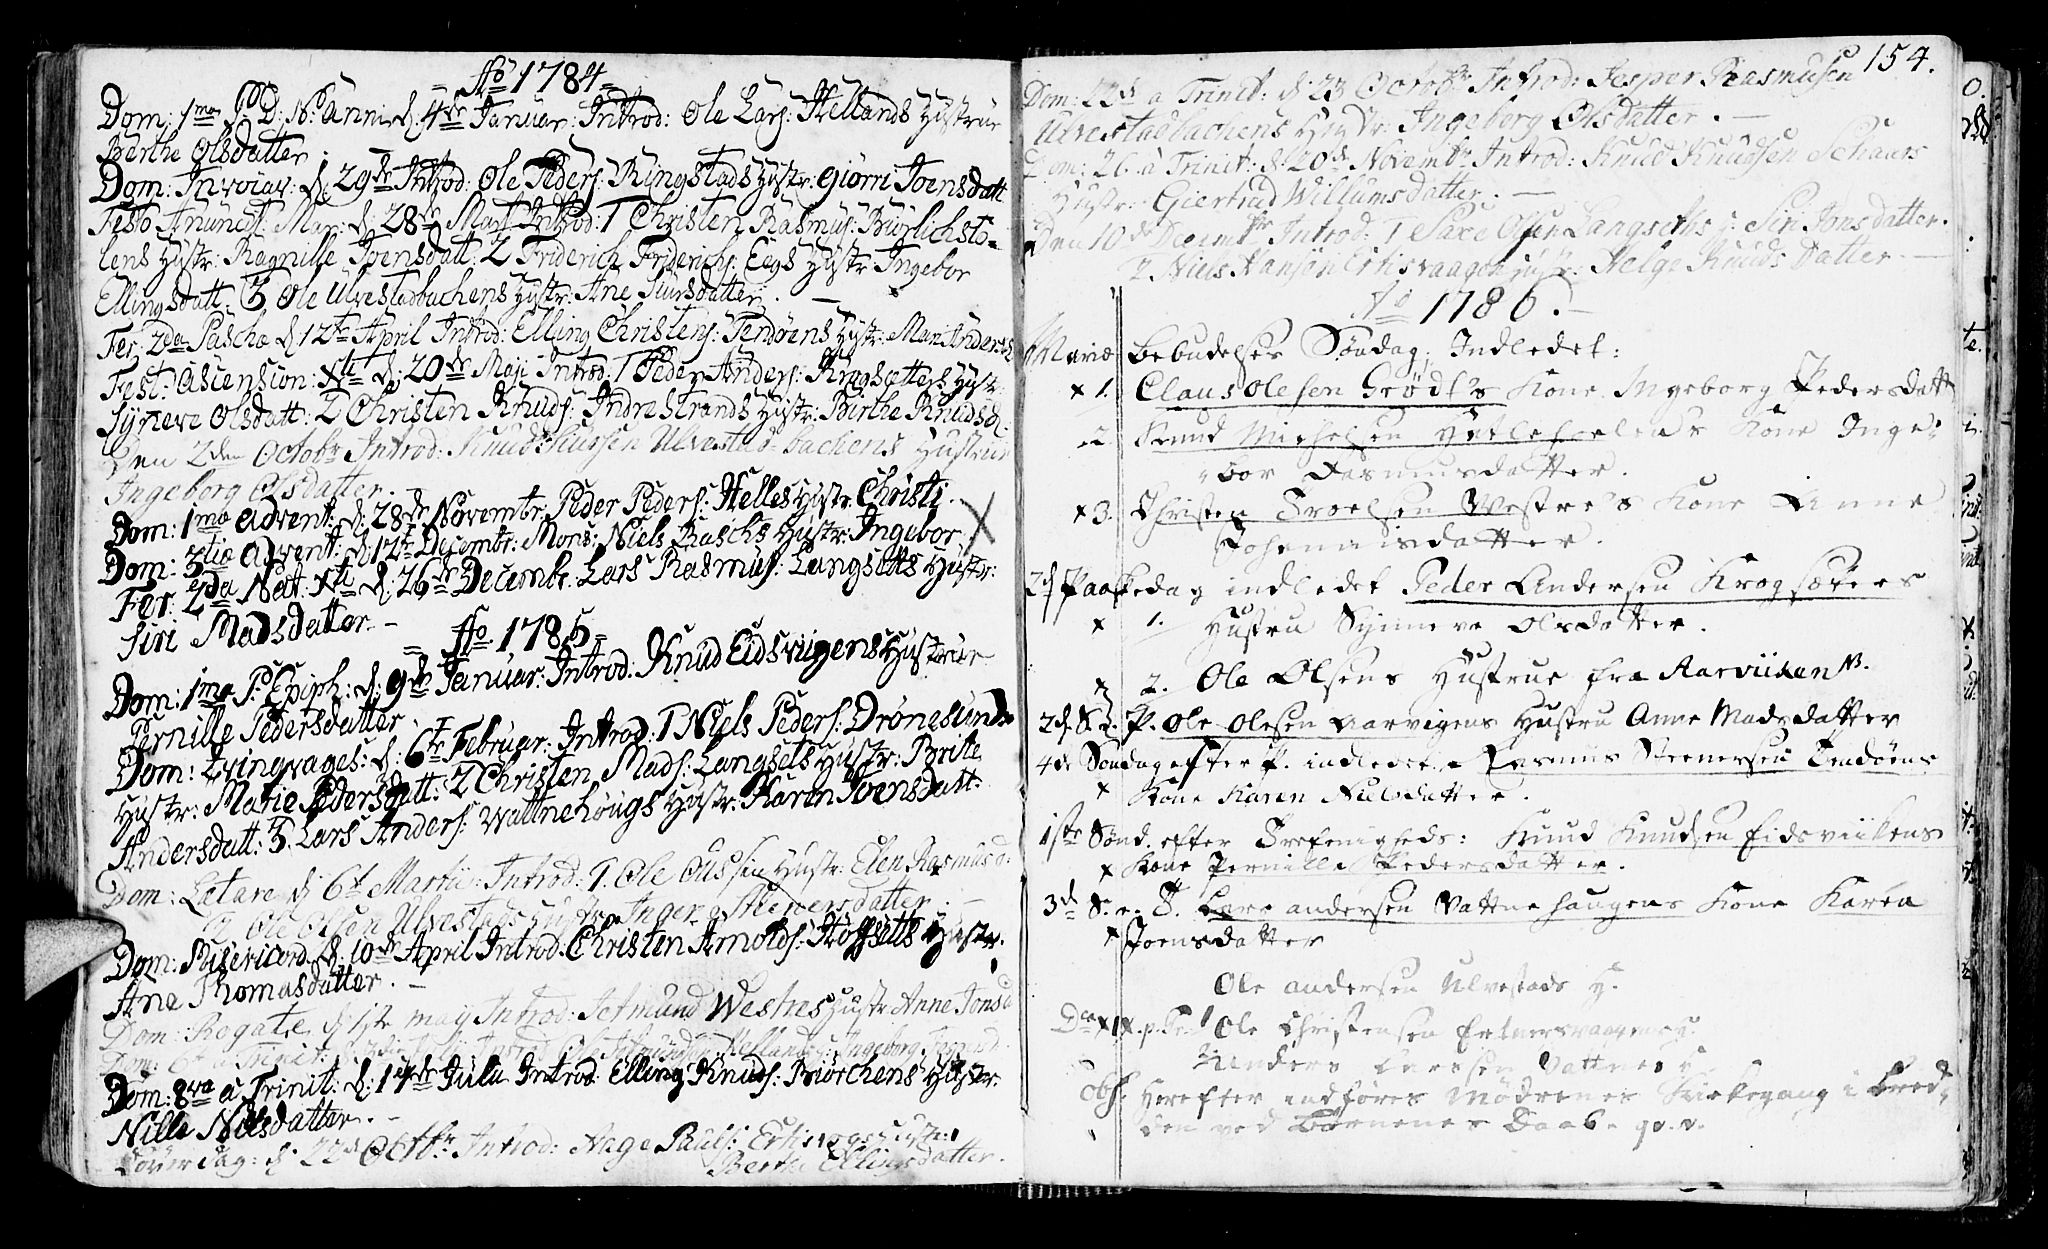 = Ao 1784 =
Dom: 1ma P: D: N: anni d: 4de Januar: Introd: Ole Lars: Hellands Hustrue
Berthe Olsdatter
Dom: Invocav: d: 29de Introd: Ole Peders: Ringstads Hustr: Giørri Joensdatt
Festo Anunc: Mar: d: 28de Mart Introd: 1 Christen Rasmus: Burlichsto-
lens Hustr: Ragnille Joensdatt: 2 Friderich Friderichs: Eegs Hustr: Ingebor
Ellingsdatt: 3 Ole Ulvestadbachens Hustr: Ane Siursdatter. —
Fer: 2da Pascha d: 12te April Introd: Elling Christens: Tendøens Hustr: Mari Anders
Fest: Ascension: Xti d: 20de Maji Introd: 1 Peder Anders: Krogsætters Hustr:
Syneve Olsdatt: 2 Christen Knuds: Indrestrands Hustr: Birthe Knudsd:
Den 2den Octobr Introd: Knud Siursen Ulvestad-bachens Hustrue
Ingeborg Olsdatter.
Dom: 1ma Advent: d: 28de Novembr: Peder Peders: Helles Hustr: Christi
Dom: 3tia Advent: d: 12te Decembr: Mons: Niels Raschs Hustr: Ingebor X
Fer: 2da Nat: Xti d: 26de Decembr: Lars Rasmus: Langseths Hustr:
Siri Madsdatter –
= Ao 1785 =
Dom: 1ma P: Epiph: d: 9de Januar: Introd: Knud Eidsvigens Hustrue
Pernille Pedersdatter
Dom: Qvinqvages: d: 6te Februar: Introd: 1 Niels Peders: Drönesunds
Hustr: Marie Pedersdatt: 2 Christen Mads: Langsets Hustr: Brite
Andersdatt: 3 Lars Anders: Wattnehougs Hustr: Karen Joensdatt:
Dom: Lætare d 6t Martii: Introd: 1. Ole Hustr: Elen Rasmusd:
2 Ole Olsen Ulvestads Hustr: Inger datter. —
Dom: Misericord d: 10de April Introd: Christen Arnolds: Höffsetts Hustr.
Ane Thomasdatter. —
Dom: Rogate d 1te maij Introd: Setmund Westnes Hustr Anne Jonsd
Dom: 6te a Trinit: Introd: Hellands Ingeborg
Dom: 8va a Trinit: d: 17de Julii Introd: Elling Knuds: Biörchens Hustr.
Nille Nilsdatter. –
Löverdag: d: 22d Octbr Introd: Aage Pauls: Hustr:
Berthe Ellingsdatter.
154.
Dom: 22d a Trinit: d 23 Octobr Introd: Jesper Rasmusen
Ulvestadbachens Hustr: Ingeborg Olsdatter. —
Dom: 26. a Trinit: d 20de Novembr Introd: Knud Knudsen
Hustr: Giertrud Willumsdatter. —
Den 10de Decembr Introd: 1 Saxe Olsen Langseths : Siri Jonsdatter.
2 Niels Hansen : Helge Knuds Datter —
Ao 1786. –
Mariæ Bebudelses Søndag; Indledet:
x 1. Claus Olesen Grødt's Kone Ingeborg Pedersdatt
2. Knud Michelsen Kone Inge-
bor Rasmusdatter.
x 3. Christen Troelsen Vestre's Kone Anne
Johannisdatter.
2d Paaskedag indledet Peder Andersen Krogsæters
x 1. Hustru Synneve Olsdatter.
x 2. Ole Olsens Hustrue fra Aarviiken
2d S. e. P. Ole Olesen Aarvigens Hustru Anne Madsdatter
4de Søndag efter P. indledet Rasmus Steenersen Tendøens
x Kone Karen Nielsdatter.
1ste Sønd. efter Trefenigheds: Knud Knudsen Eidsviikens
x Kone Pernille Pedersdatter.
3d S. e. T. Lars Andersen Vattnehaugens Kone Karen
x Joensdatter
Ole Andersen Ulvestads H.
1 Ole Christensen
2 Anders Larssen Vattnes
Obs. Herefter indføres Mødrenes Kirkegang i Bred-
den ved Børnenes Daab. qv. v.